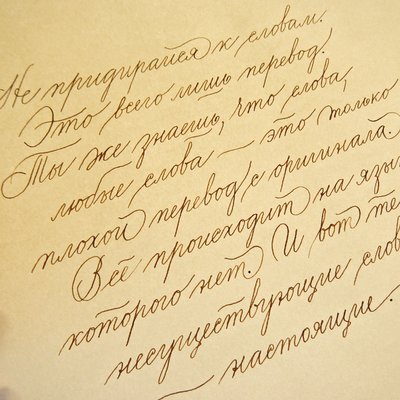 Не придирайся к словам.
Это всего лишь перевод.
Ты же знаешь, что слова,
любые слова — это только
плохой перевод с оригинала.
Всё происходит на язы
которого нет. И вот те
несуществующие слов
— настоящие.